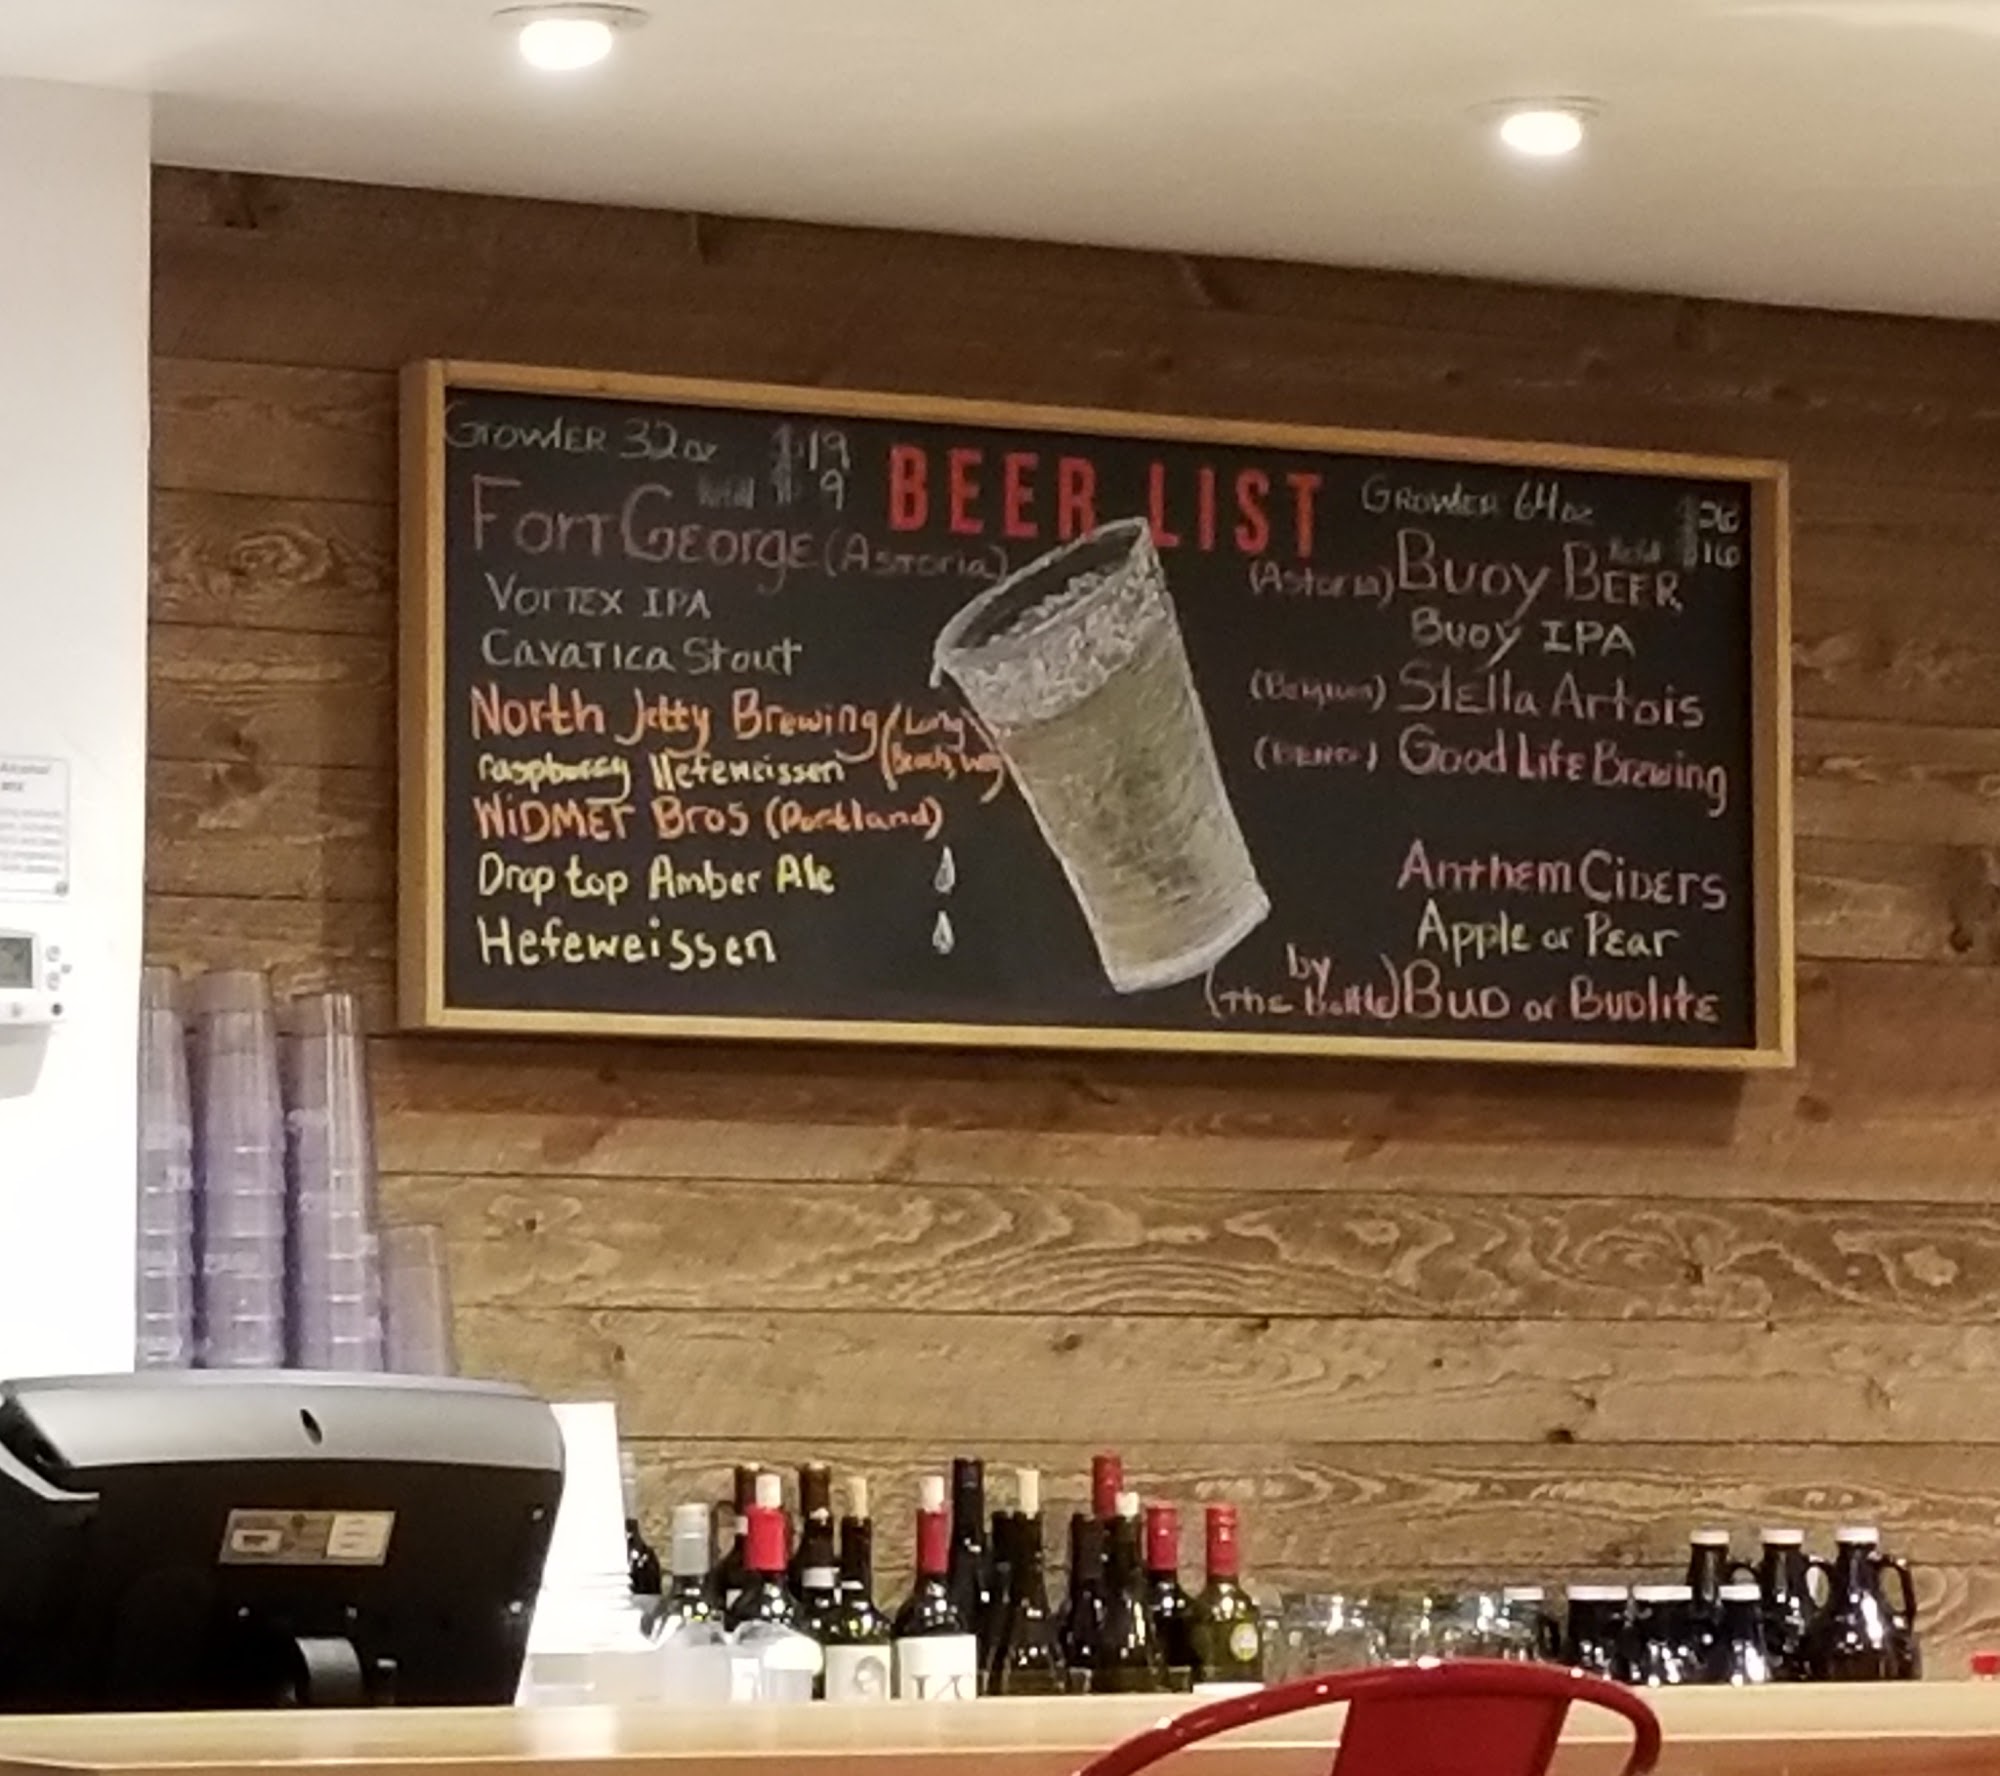 BEER LIST
GrowlER 32oz $19
Refill $ 9
Fort George (Astoria)
VorTEX IPA
CavaTICa Stout
North Jetty Brewing (Long
raspberry Hefeweissen Beach, WA)
WiDMEr Bros (Portland)
Drop top Amber Ale
Hefeweissen
GrowlEr 64oz $26
Refill $16
(Astoria) Buoy BEER
Buoy IPA
(Belgium) StElla Artois
(BEND) Good LifE Brewing
Anthem CiDErs
Apple or PEar
by
(The Bottle) BuD or BuDlitE